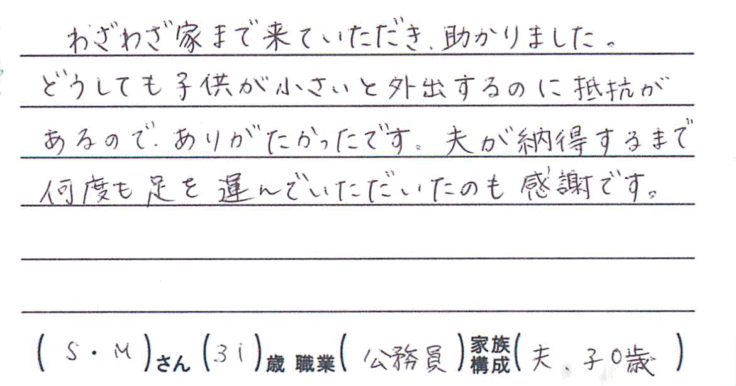 わざわざ家まで来ていただき、助かりました。
どうしても子供が小さいと外出するのに抵抗が
あるので、ありがたかったです。夫が納得するまで
何度も足を運んでいただいたのも感謝です。
(S・M)さん(31)歳 職業(公務員)家族構成(夫、子0歳)